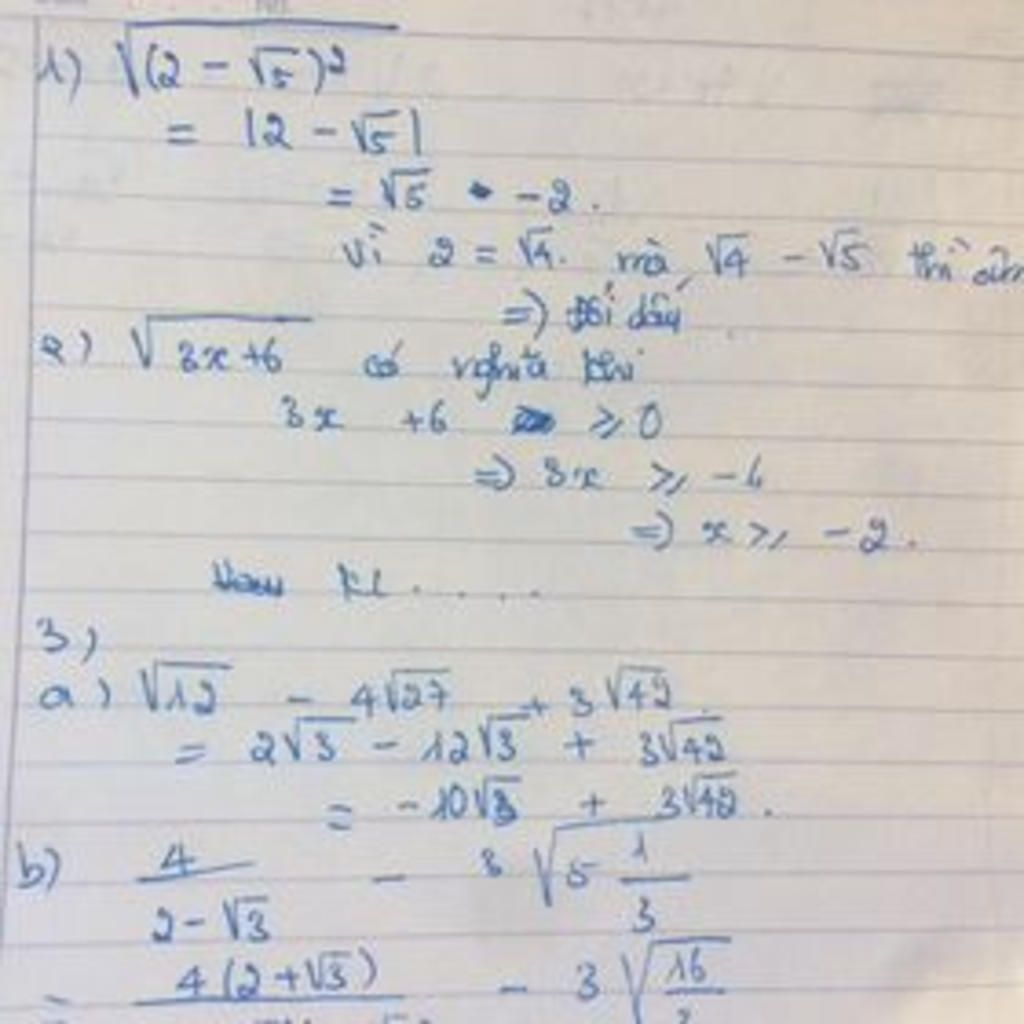 1) √(2 - √5)²
= |2 - √5|
= √5 - 2.
Vì 2 = √4. mà √4 - √5 thì
=> Đổi dấu
2) √3x+6 có nghĩa khi
3x +6 ≥ 0
=> 3x ≥ -6
=> x ≥ -2.
KL.....
3)
a) √12 - 4√27 + 3√42.
= 2√3 - 12√3 + 3√42
= -10√3 + 3√42.
b) 4/(2-√3) - 3√5 1/3
= 4(2+√3) - 3√16